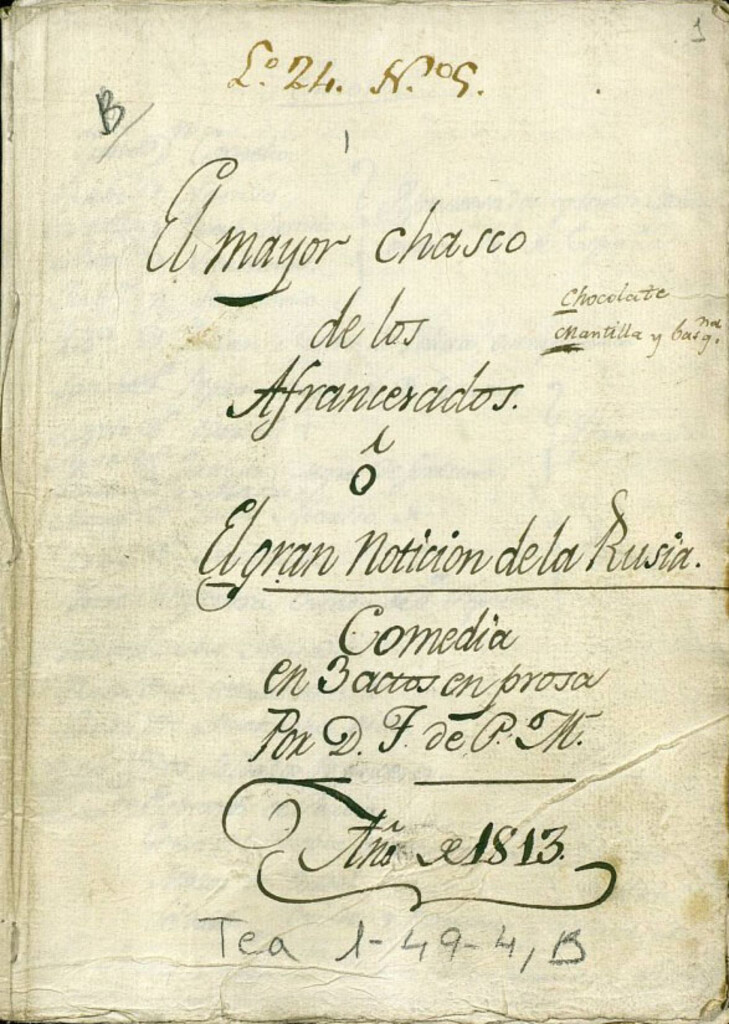 1
L.º 24. N.º 5.
B
El mayor chasco
de los
Afrancesados.
ó
El gran Noticion de la Rusia.
Chocolate
Mantilla y basq.ña
Comedia
en 3 actos en prosa
Por D. F. de P. M.
Año de 1813.
Tea 1-49-4, B